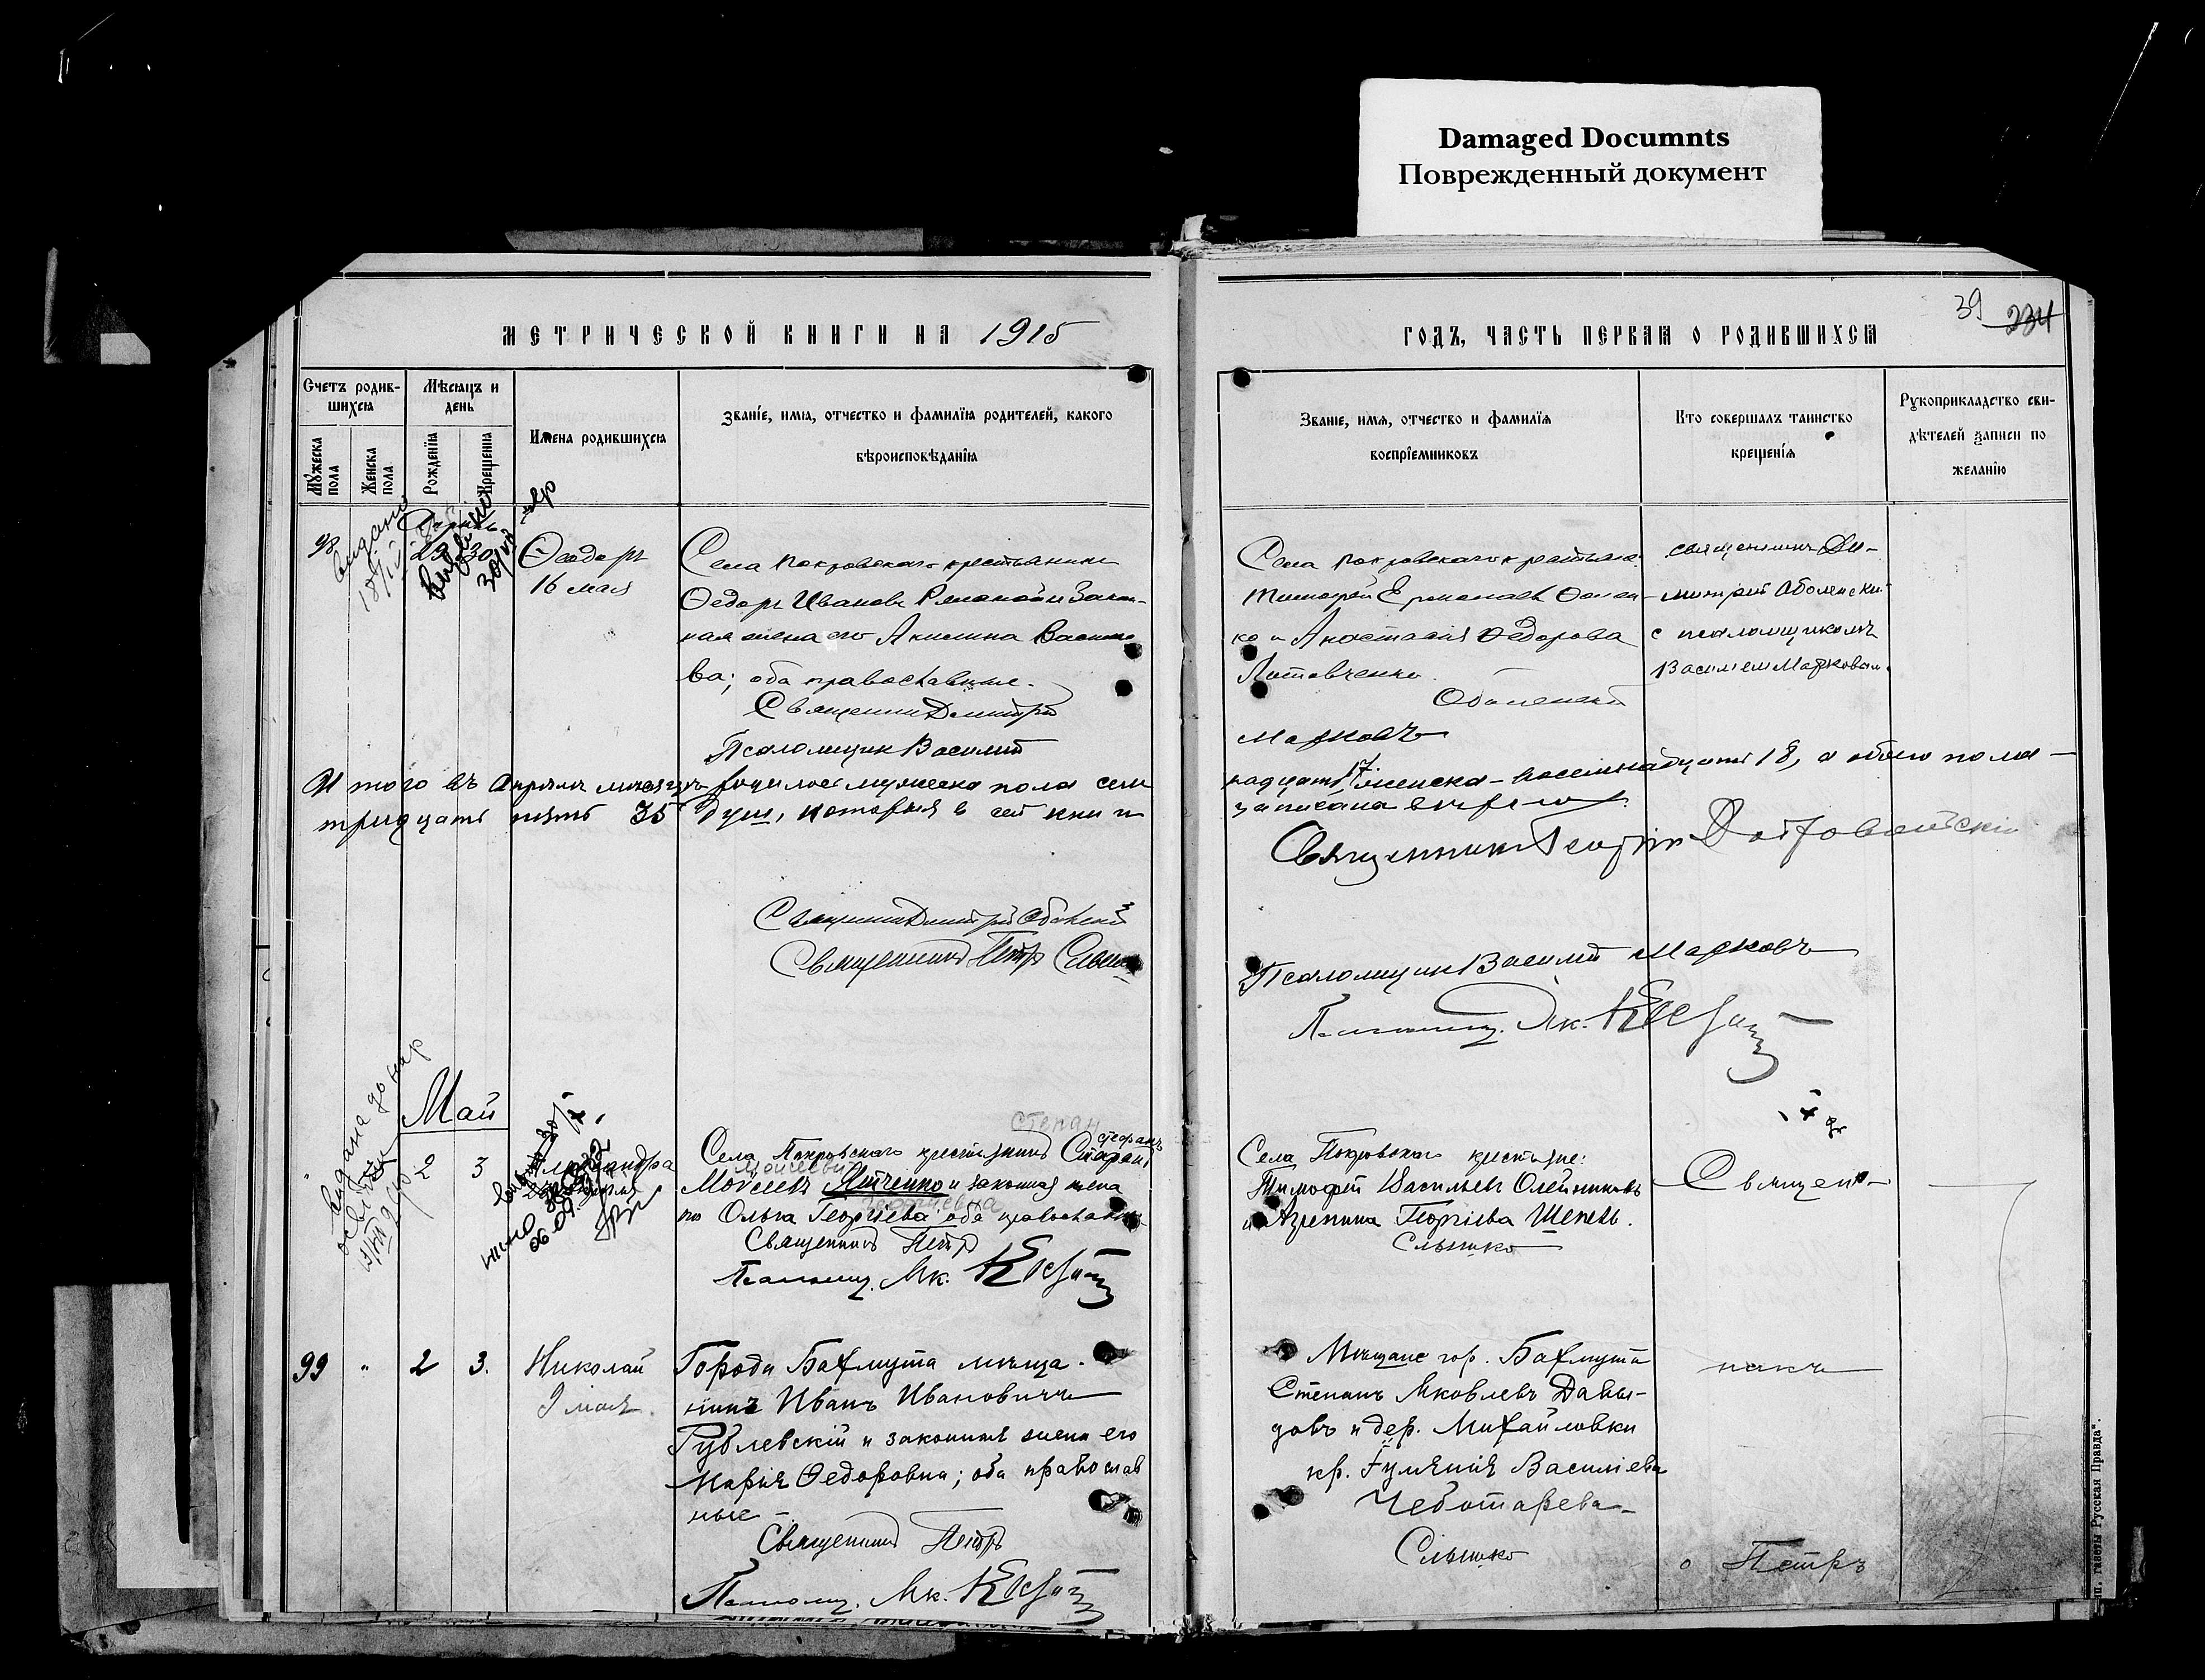 Damaged Documnts
Поврежденный документ
39 234
МЕТРИЧЕСКОЙ КНИГИ НА 1915
ГОДЪ, ЧАСТЬ ПЕРВАЯ О РОДИВШИХСЯ
Счетъ родив-
шихся
Мѣсяцъ и
день
Мужеска
пола
Женска
пола
Рожденїя
Крещенїя
Имена родившихся
Званїе, имя, отчество и фамилїя родителей, какого
вѣроисповѣданїя
Званїе, имя, отчество и фамилїя
воспрїемниковъ
Кто совершалъ таинство
крещенїя
Рукоприкладство сви-
дѣтелей записи по
желанїю
98 29 30 Ѳеодоръ
16 мая
Села Покровскаго крестьянинъ
Ѳедоръ Ивановъ и закон-
ная жена его Акилина Василье
ва; оба православные.
Священникъ Димитрій
Псаломщик Василий
Села Покровскаго крестьяне
Тимофей Ермолаев
ко и Анастасія Ѳедорова
Оболенский
Марковъ
священникъ Ди-
митрий Оболенский
с псаломщикомъ
Василием Марковым
Итого въ Апрѣлѣ мѣсяцѣ родилось мужеска пола сем
надцать 17, женска - восемнадцать 18, а обоего пола -
тридцать пять 35 душ, которыя в сей книги
записана вѣрно
Священникъ Георгій
Священник Димитрий Оболенский
Священникъ Петръ
Псаломщик Василий Марковъ
Псаломщ. Як.
Май
2 3 Александра
Степан
Стефанъ
Села Покровскаго крестьянинъ
Моисеевич
Моисеевъ Яценко и законная жена
Георгиевна
его Ольга Георгіева оба православн
Священникъ Петръ
Псаломщ. Як.
Села Покровскаго крестьяне:
Тимофей Васильевъ Олейниковъ
и Агрепина Георгіева Шепель.
Слынько
Священ-
99 " 2 3. Николай
9 мая.
Города Бахмута мѣща-
нинъ Иванъ Ивановичъ
Рублевскій и законная жена его
Марія Ѳедоровна; оба православ
ные -
Священникъ Петръ
Псаломщ. Як.
Мѣщане гор. Бахмута
Степанъ Яковлевъ Давы-
довъ и дер. Михайловки
кр. Васильева
Чеботарева
Слынько
никъ
о Петръ
тип. газеты Русская Правда".